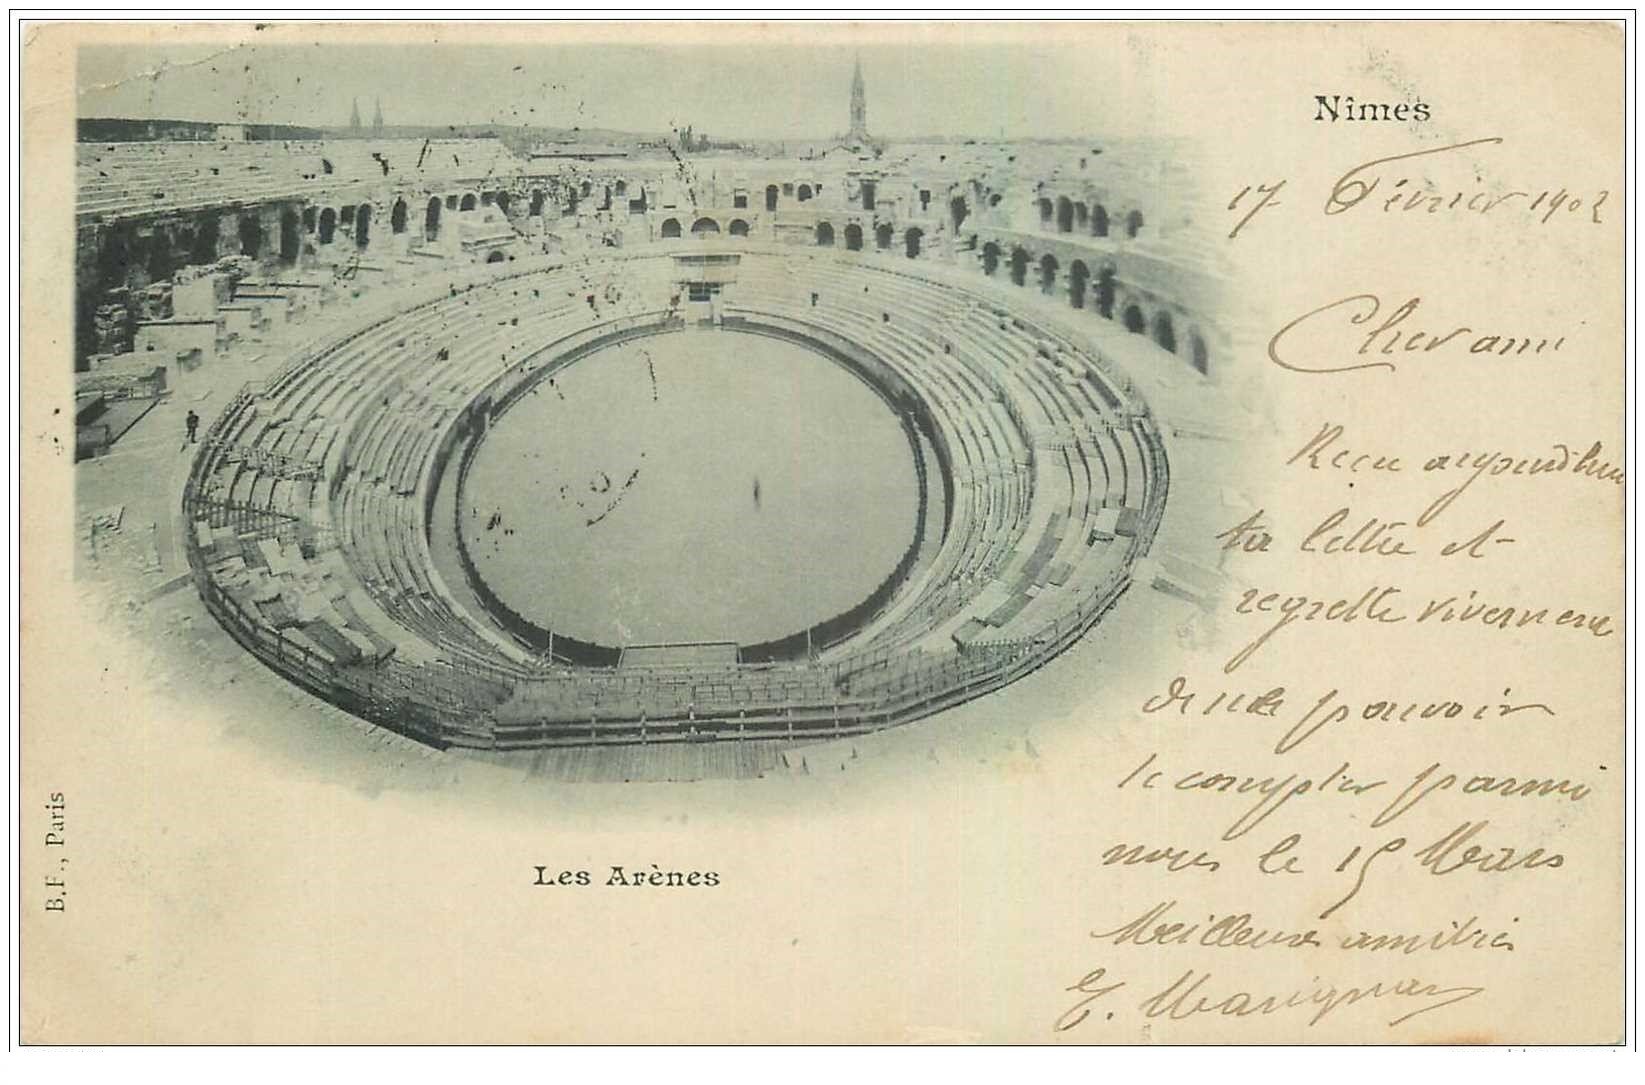 Nîmes
17 Février 1902
Cher ami
Reçu aujourd'hui
ta lettre et
regrette vivement
de ne pouvoir
te compter parmi
nous le 15 Mars
Meilleures amitiés
Les Arènes
B.F., Paris